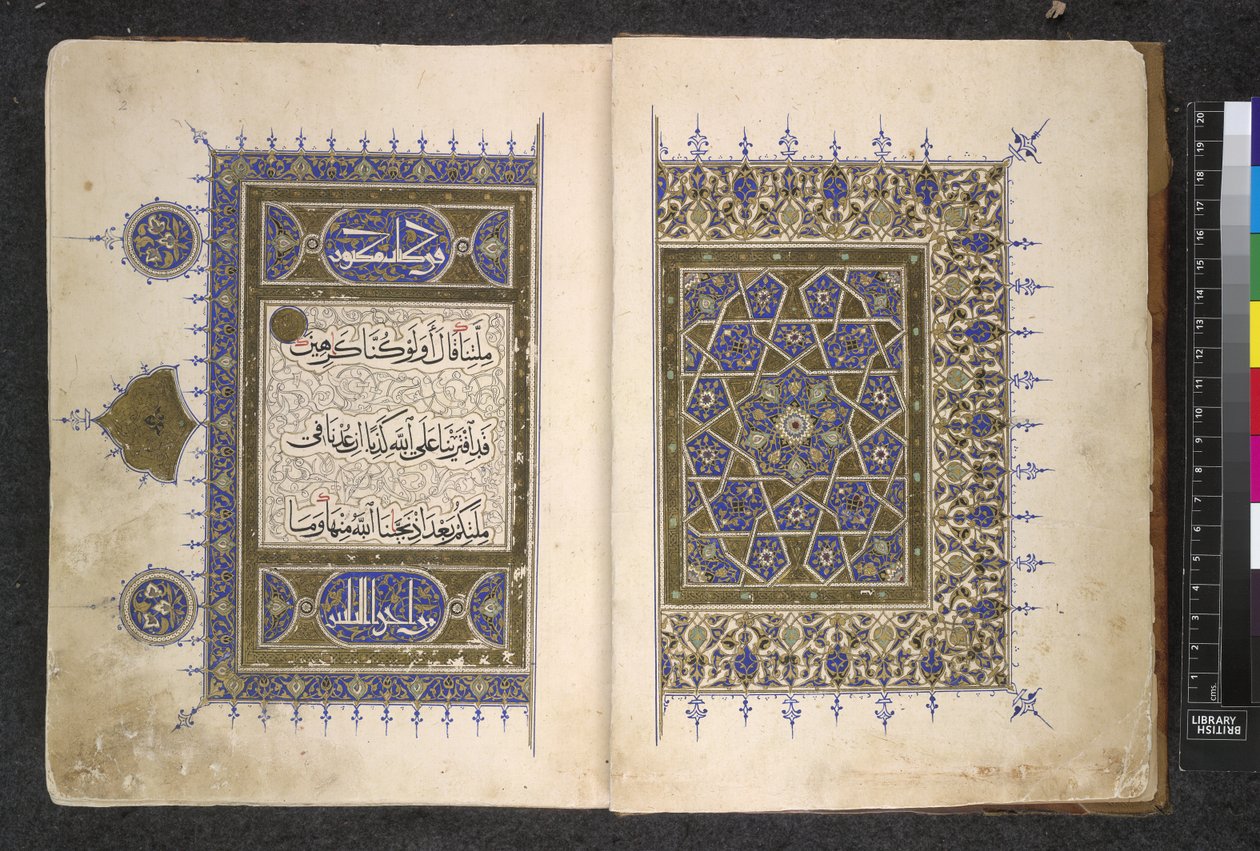 في كتاب مكنون
مِلَّتِنَا قَالَ أَوَلَوْ كُنَّا كَرِهِينَ
قَدِ ٱفْتَرَيْنَا عَلَى ٱللَّهِ كَذِبًا إِنْ عُدْنَا فِي
مِلَّتِكُمْ بَعْدَ إِذْ نَجَّىٰنَا ٱللَّهُ مِنْهَا وَمَا
2
20
19
18
17
16
15
14
13
12
11
10
9
8
7
6
5
4
3
2
1
cms.
BRITISH
LIBRARY